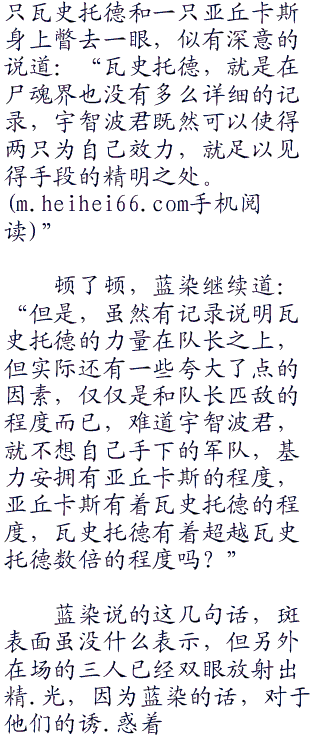 只瓦史托德和一只亚丘卡斯
身上瞥去一眼，似有深意的
说道：“瓦史托德，就是在
尸魂界也没有多么详细的记
录，宇智波君既然可以使得
两只为自己效力，就足以见
得手段的精明之处。
(m.heihei66.com手机阅
读)”
顿了顿，蓝染继续道：
“但是，虽然有记录说明瓦
史托德的力量在队长之上，
但实际还有一些夸大了点的
因素，仅仅是和队长匹敌的
程度而已，难道宇智波君，
就不想自己手下的军队，基
力安拥有亚丘卡斯的程度，
亚丘卡斯有着瓦史托德的程
度，瓦史托德有着超越瓦史
托德数倍的程度吗？”
蓝染说的这几句话，斑
表面虽没什么表示，但另外
在场的三人已经双眼放射出
精.光，因为蓝染的话，对于
他们的诱.惑着